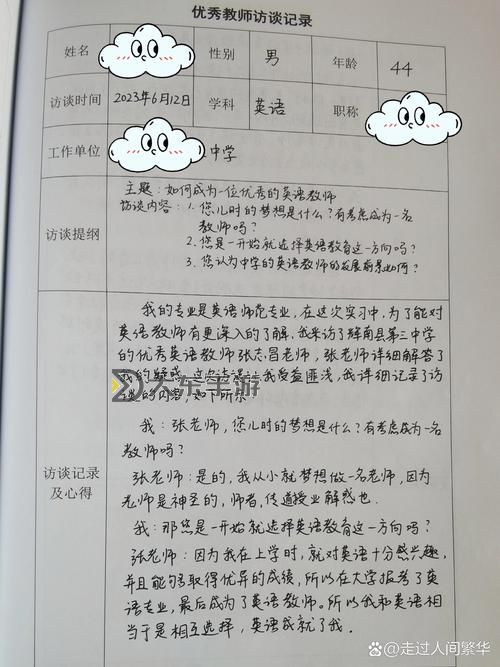 优秀教师访谈记录
姓名 性别 男 年龄 44
访谈时间 2023年6月12日 学科 英语 职称
工作单位 中学
访谈提纲
主题：如何成为一位优秀的英语教师
访谈内容：1.您儿时的梦想是什么？有考虑成为一名
教师吗？
2.您是一开始就选择英语教育这一方向吗？
3.您认为中学的英语教师的发展前景如何？
访谈记录
及心得
我的专业是英语师范专业，在这次实习中，为了能对
英语教师有更深入的了解，我采访了辉南县第三中学
的优秀英语教师张志昌老师，张老师详细解答了
我的疑惑，这次访谈让我受益匪浅，我详细记录了访
谈的内容，如下所示
大东手游
我：张老师，您儿时的梦想是什么？有考虑成为一名
教师吗？
张老师：是的，我从小就梦想做一名老师，因为
老师是神圣的，师者，传道授业解惑也.
我：那您是一开始就选择英语教育这一方向吗？
张老师：因为我在上学时，就对英语十分感兴趣，
并且能够取得优异的成绩，所以在大学报考了英
语专业，最后成为了英语教师。所以我和英语相
当于是相互选择，英语成就了我.
@走过人间繁华